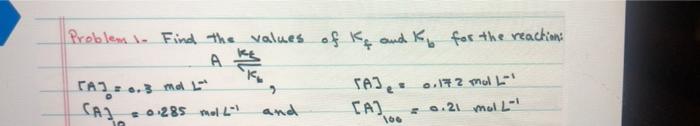 Problem 1- Find the values of Kf and Kb for the reaction:
A ⇌ Kf Kb
[A]0 = 0.3 mol L-1 , [A]e = 0.172 mol L-1
[A]10 = 0.285 mol L-1 and [A]100 = 0.21 mol L-1